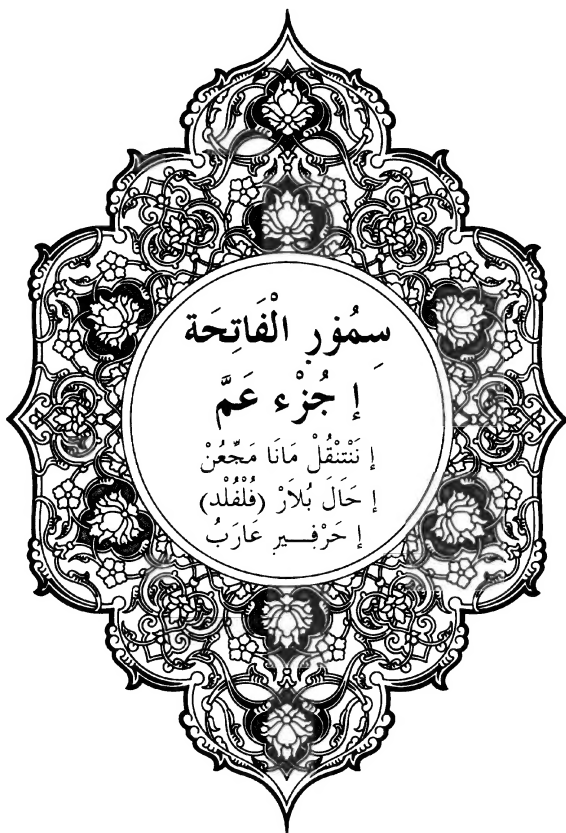 سِمُوْرٜ الْفَاتِحَة
إ جُزْء عَمَّ
إ نَنْتِنْقُلْ مَانَا مَجِّعُنْ
إ حَالَ بُلَارْ (فُلْفُلْد)
إ حَرْفِيرِ عَارَبُ